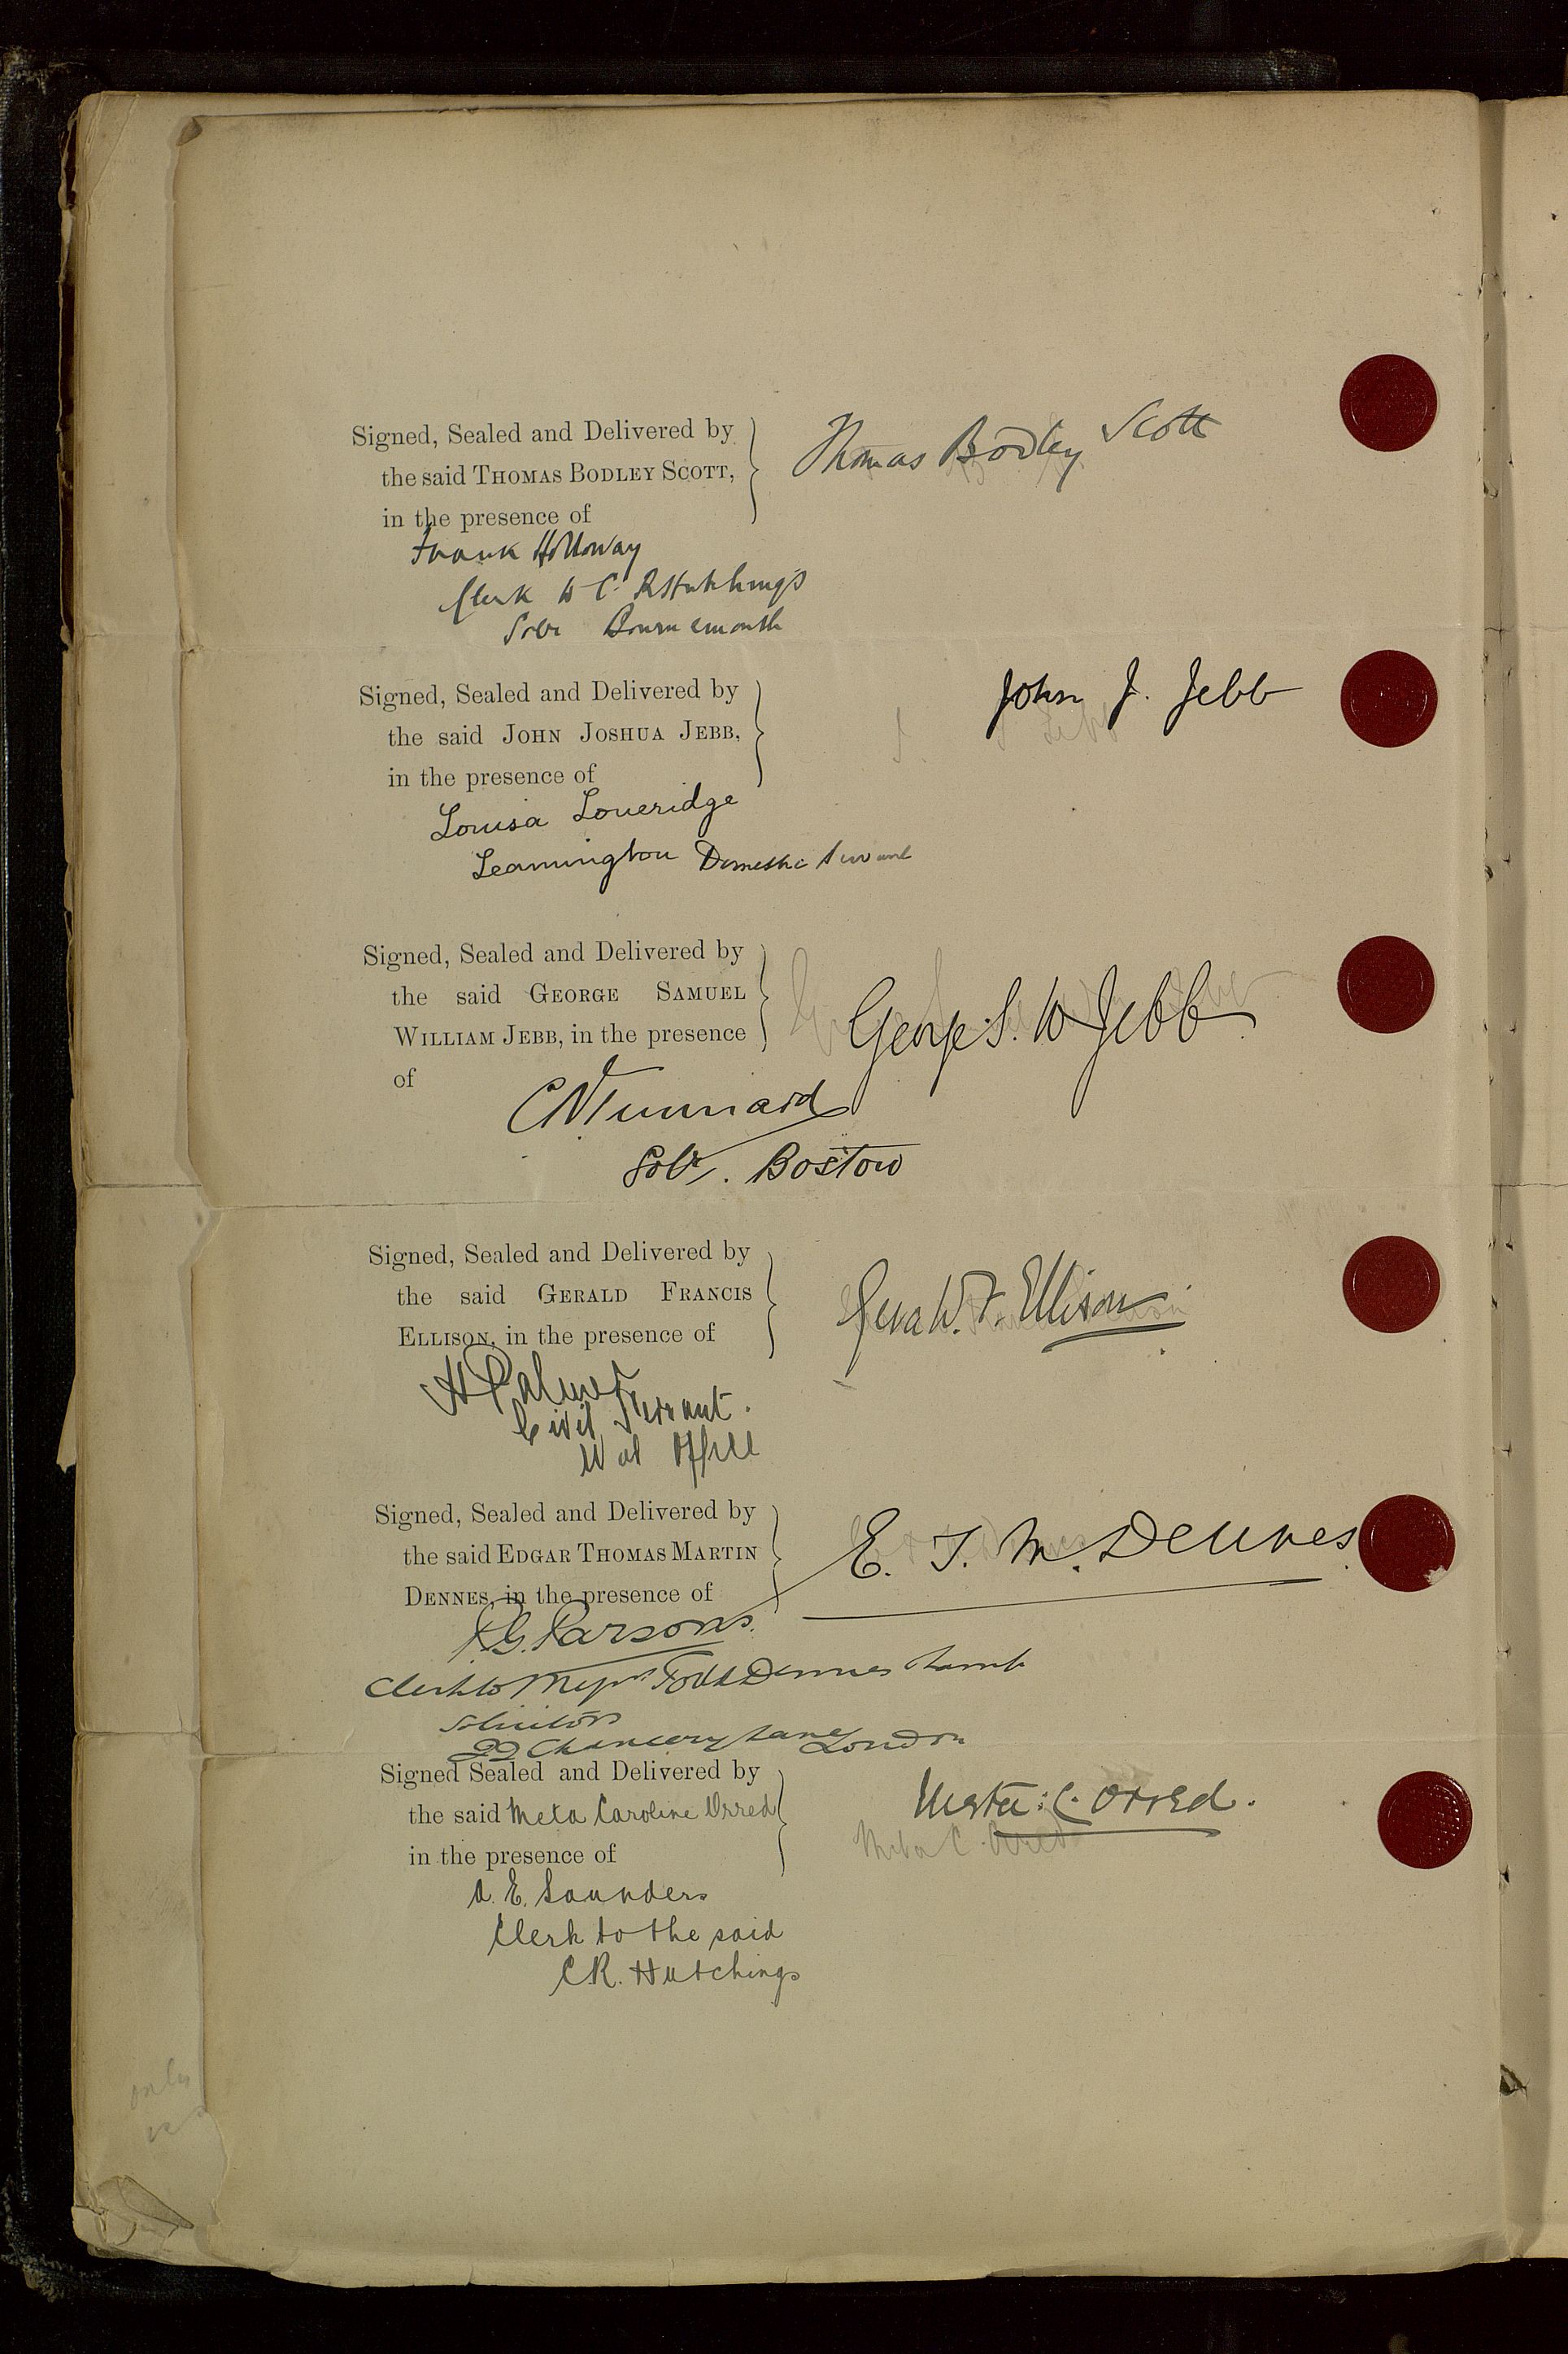 Signed, Sealed and Delivered by
the said THOMAS BODLEY SCOTT,
in the presence of
Thomas Bodley Scott
Frank Holloway
Clerk to C. R. Hutchings
Solr Bournemouth
Signed, Sealed and Delivered by
the said JOHN JOSHUA JEBB,
in the presence of
John J. Jebb
Louisa Loveridge
Leamington Domestic Servant
Signed, Sealed and Delivered by
the said GEORGE SAMUEL
WILLIAM JEBB, in the presence
of
George S. W Jebb
C Tunnard
Solr. Boston
Signed, Sealed and Delivered by
the said GERALD FRANCIS
ELLISON, in the presence of
Gerald. F. Ellison
H Palmer
Civil Servant.
War Office
Signed, Sealed and Delivered by
the said EDGAR THOMAS MARTIN
DENNES, in the presence of
E. T. M. Dennes
G. Parsons.
Clerk to Messrs Todd Dennes & Lamb
Solicitors
22 Chancery Lane London
Signed Sealed and Delivered by
the said Meta Caroline Orred
in the presence of
Meta: C. Orred.
Meta C. Orred
A. E. Saunders
Clerk to the said
C R. Hutchings
only